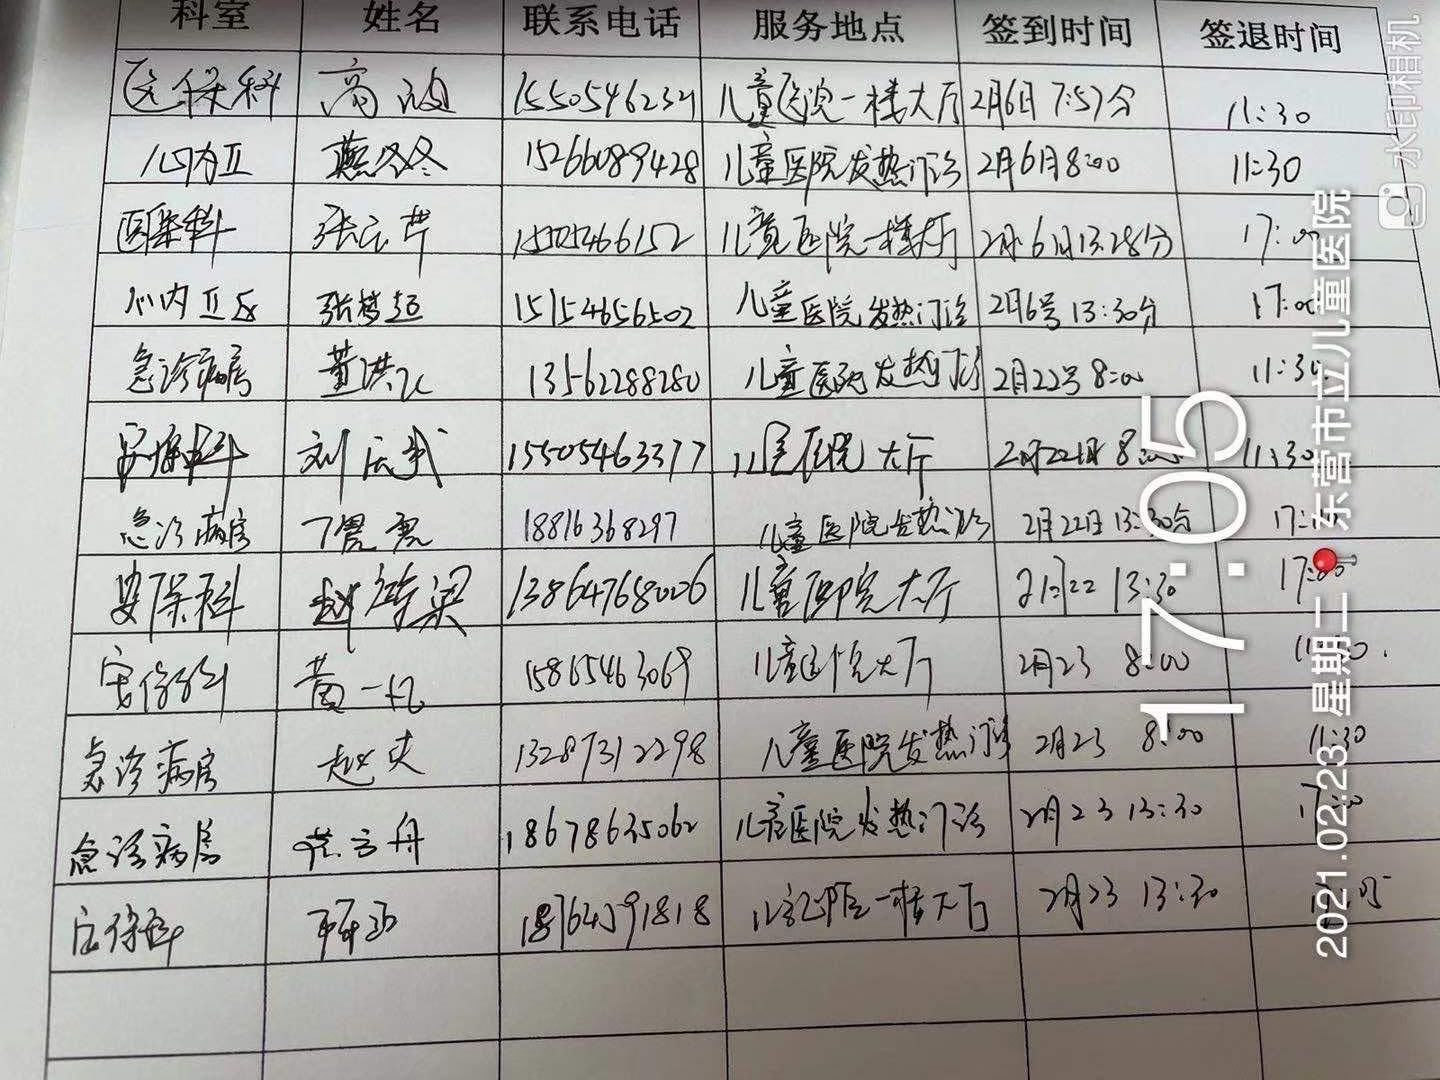 科室 姓名 联系电话 服务地点 签到时间 签退时间
医保科 高波 15505462321 儿童医院一楼大厅 2月6日 7:57分 11:30
儿内五 燕冬冬 15266089428 儿童医院发热门诊 2月6日8:00 11:30
医保科 儿童医院一楼大厅 2月6日13:28分 17:00
张梦超 15154656502 儿童医院发热门诊 2月6号 13:30分 17:00
急诊病房 董洪 13562288280 儿童医院发热门诊 2月22号 8:00 11:30
刘 15505463377 大厅 2月22日 11:30
急诊病房 18816368297 儿童医院发热门诊 2月22日 13:30分
安保科 13864768006 儿童医院大厅 13:30 17:00
黄一凡 15865463069 儿童医院大厅 2月23 8:00
急诊病房 赵夫 13287312298 儿童医院发热门诊 2月23 8:00 11:30
急诊病房 方舟 18678635062 儿童医院发热门诊 2月23 13:30
18764591818 一楼大厅 2月23 13:30
水印相机
17:05
2021.02.23 星期二 东营市立儿童医院